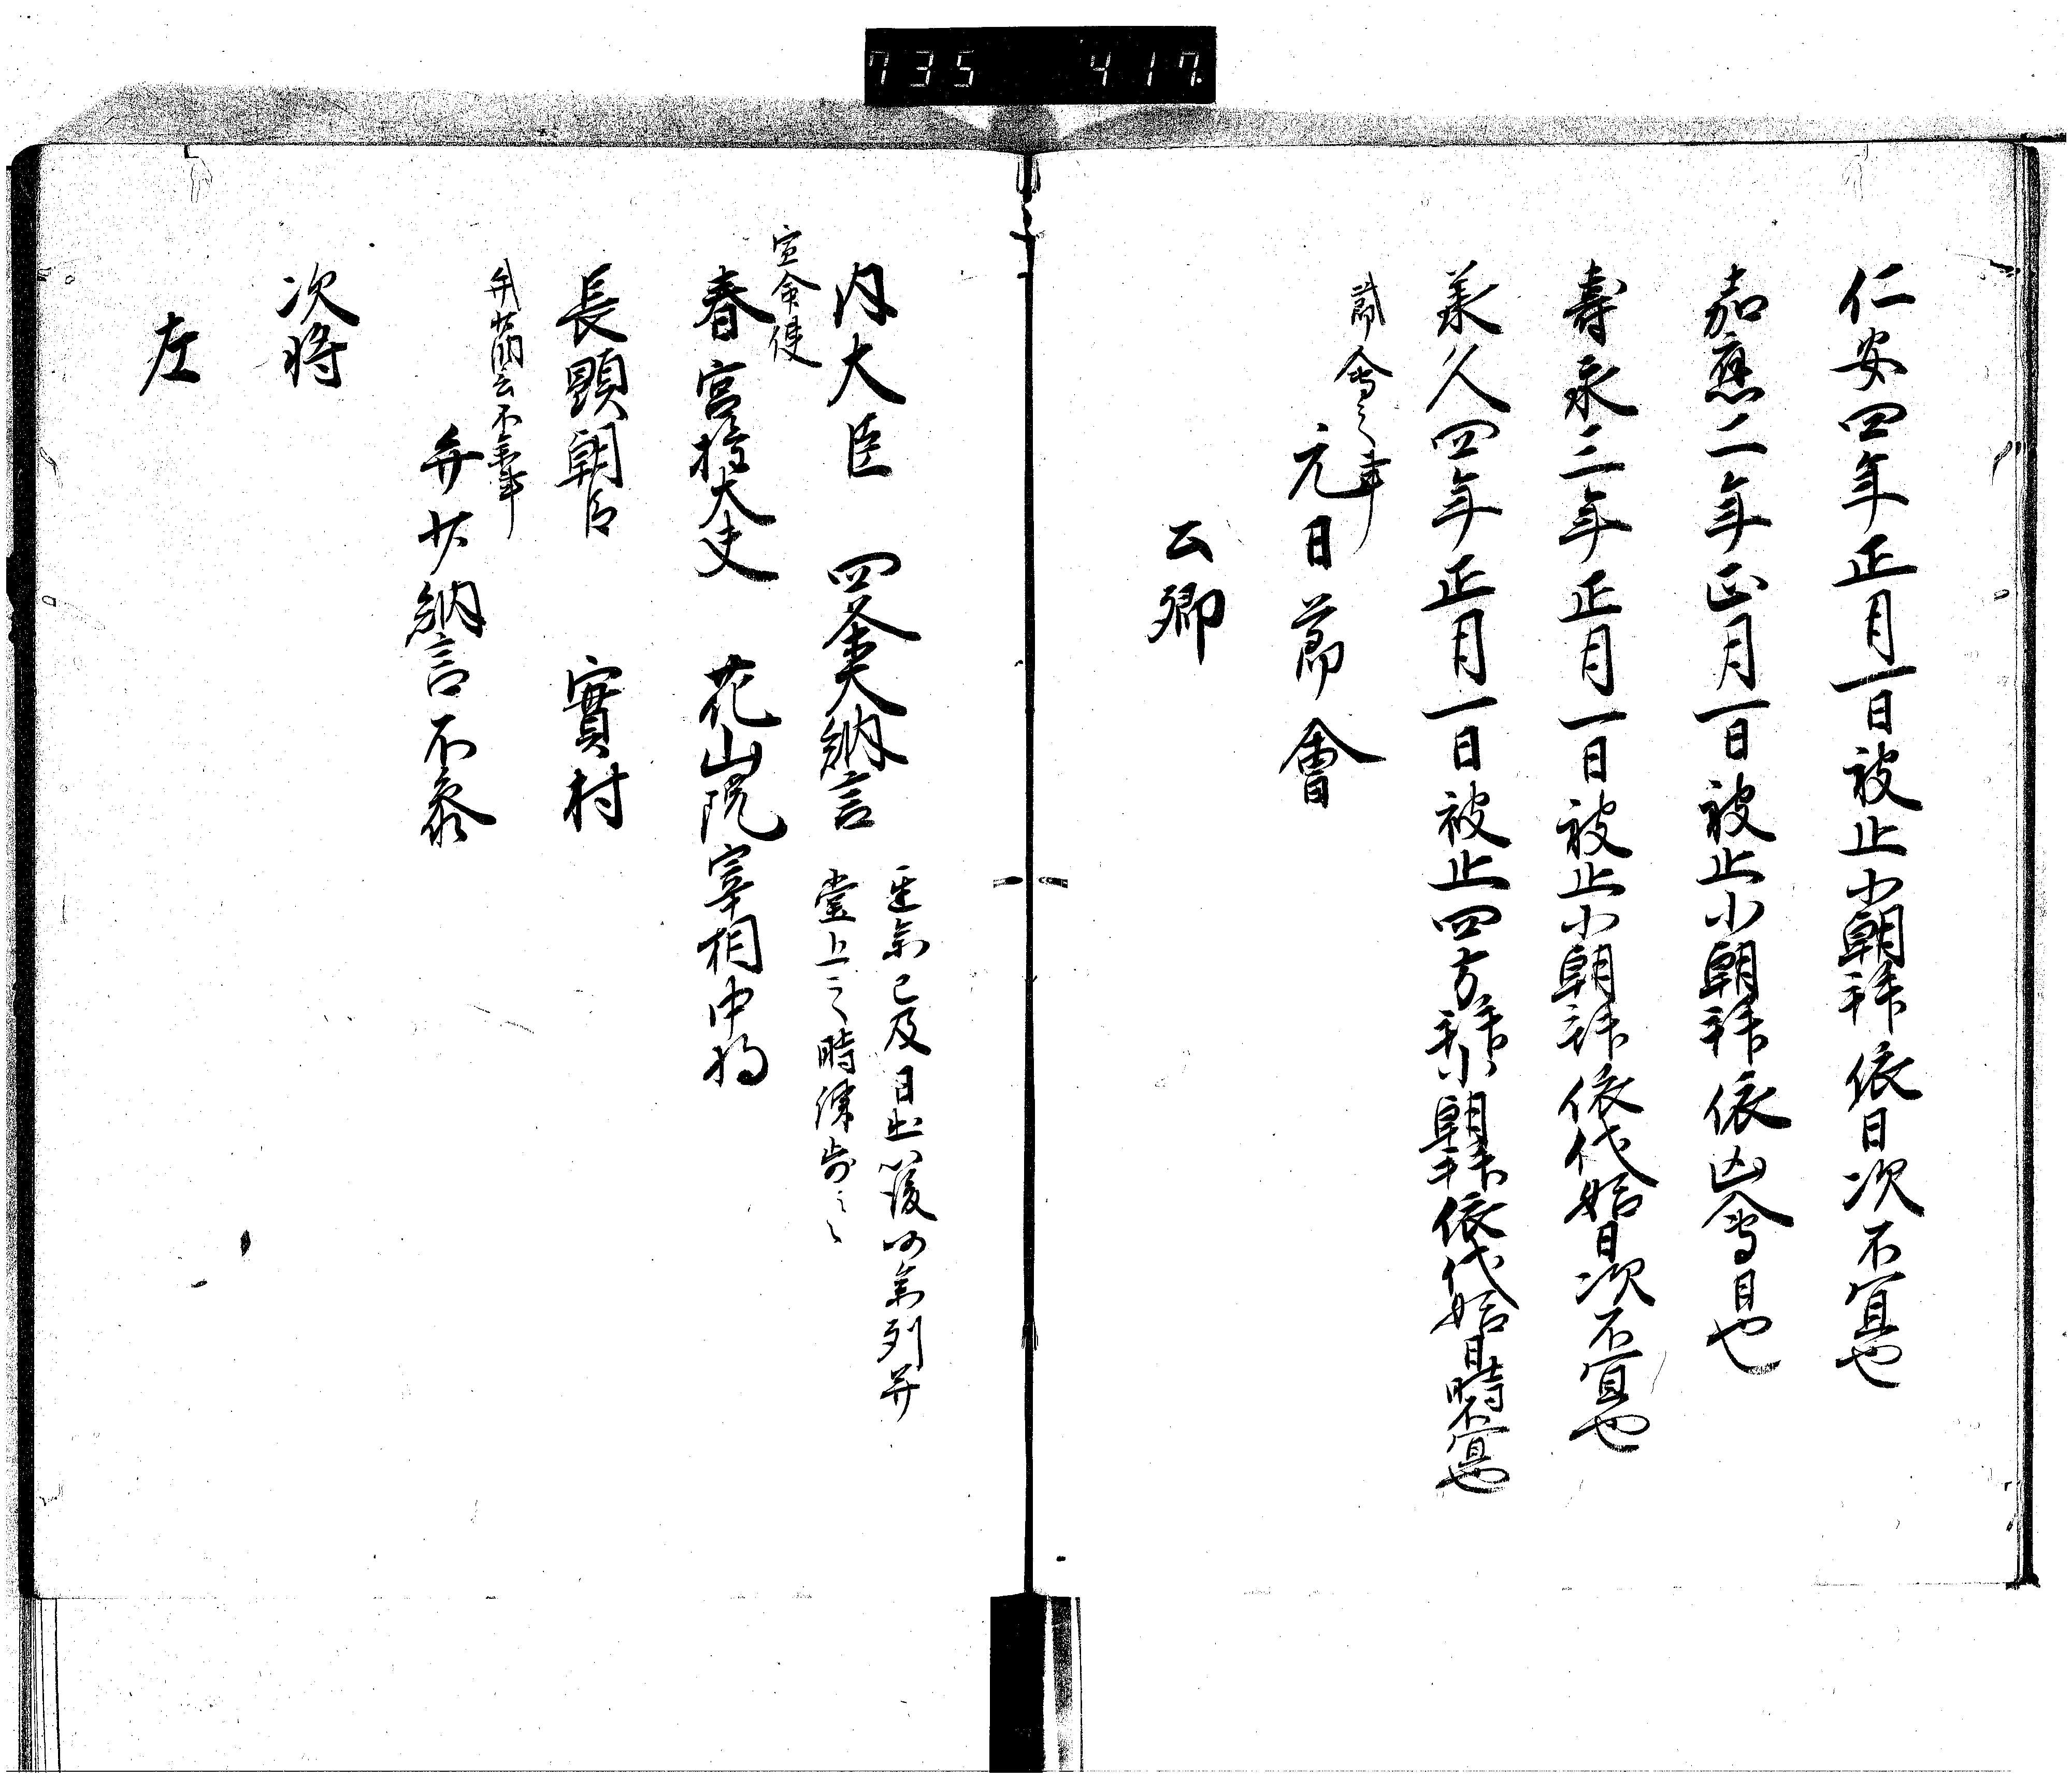 735 417
仁安四年正月一日被止小朝拝依日次不宜也
嘉應二年正月一日被止小朝拝依凶會日也
壽永三年正月一日被止小朝拝依代始日次不宜也
承久四年正月一日被止四方拝小朝拝依代始日時不宜也
節會之事
元日節會
公卿
内大臣 四条大納言
遅参已及日出以後仍参列并
堂上之時練歩之
宣命使
春宮権大夫 花山院宰相中将
長顕朝臣 實村
弁少納言不参事
弁少納言不参
次将
左